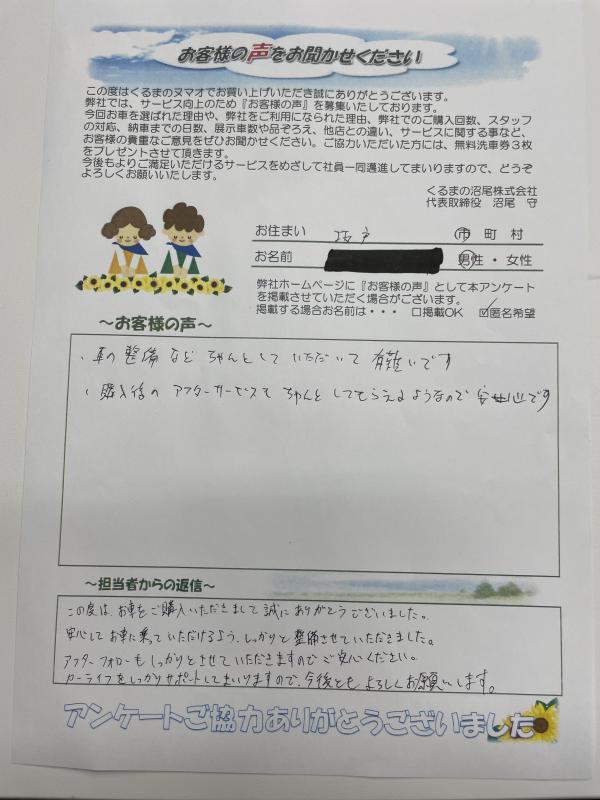 お客様の声をお聞かせください
この度はくるまのヌマオでお買い上げいただき誠にありがとうございます。
弊社では、サービス向上のため『お客様の声』を募集いたしております。
今回お車を選ばれた理由や、弊社をご利用になられた理由、弊社でのご購入回数、スタッフ
の対応、納車までの日数、展示車数や品ぞろえ、他店との違い、サービスに関する事など、
お客様の貴重なご意見をぜひお聞かせください。ご協力いただいた方には、無料洗車券３枚
をプレゼントさせて頂きます。
今後もよりご満足いただけるサービスをめざして社員一同邁進してまいりますので、どうぞ
よろしくお願いいたします。
くるまの沼尾株式会社
代表取締役 沼尾 守
お住まい 坂戸 市 町 村
お名前 男性・女性
弊社ホームページに『お客様の声』として本アンケート
を掲載させていただく場合がございます。
掲載する場合お名前は・・・ □掲載OK ☑匿名希望
～お客様の声～
・車の整備などちゃんとしていただいて有難いです
・購入後のアフターサービスもちゃんとしてもらえるようなので安心です
～担当者からの返信～
この度は、お車をご購入いただきまして誠にありがとうございました。
安心してお車に乗っていただけるよう、しっかりと整備させていただきました。
アフターフォローもしっかりとさせていただきますのでご安心ください。
カーライフをしっかりサポートしてまいりますので、今後ともよろしくお願いします。
アンケートご協力ありがとうございました